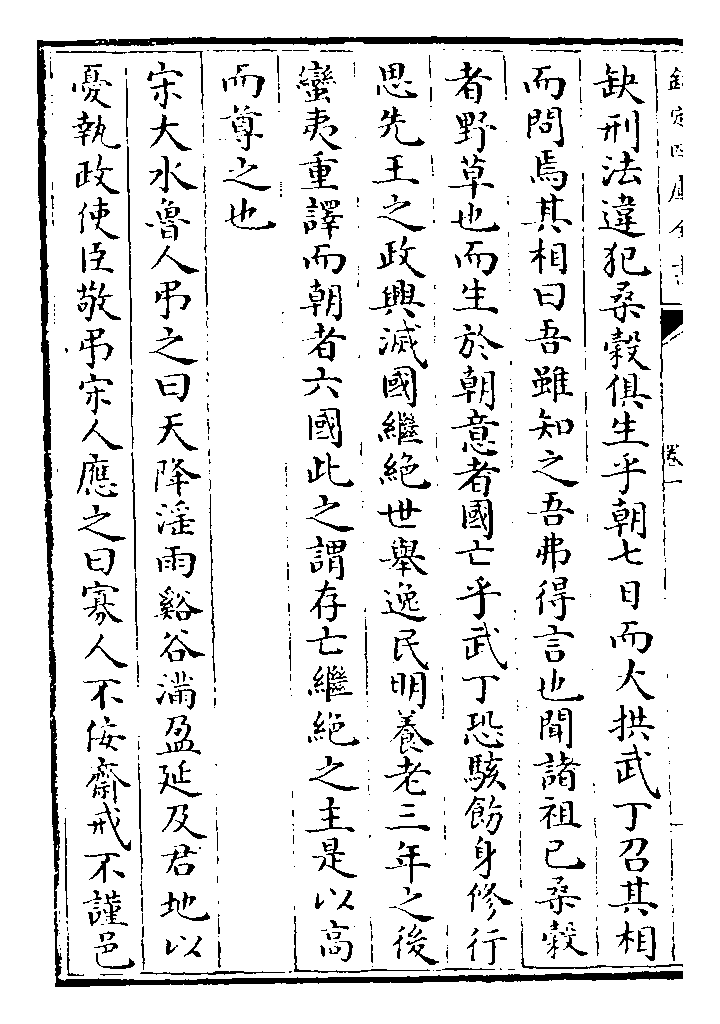 欽定四庫全書
卷一
缺刑法違犯桑榖俱生乎朝七日而大拱武丁召其相
而問焉其相曰吾雖知之吾弗得言也聞諸祖已桑榖
者野草也而生於朝意者國亡乎武丁恐駭飭身修行
思先王之政興滅國繼絶世舉逸民明養老三年之後
蠻夷重譯而朝者六國此之謂存亡繼絶之主是以高
而尊之也
宋大水魯人弔之曰天降淫雨谿谷滿盈延及君地以
憂執政使臣敬弔宋人應之曰寡人不佞齋戒不謹邑